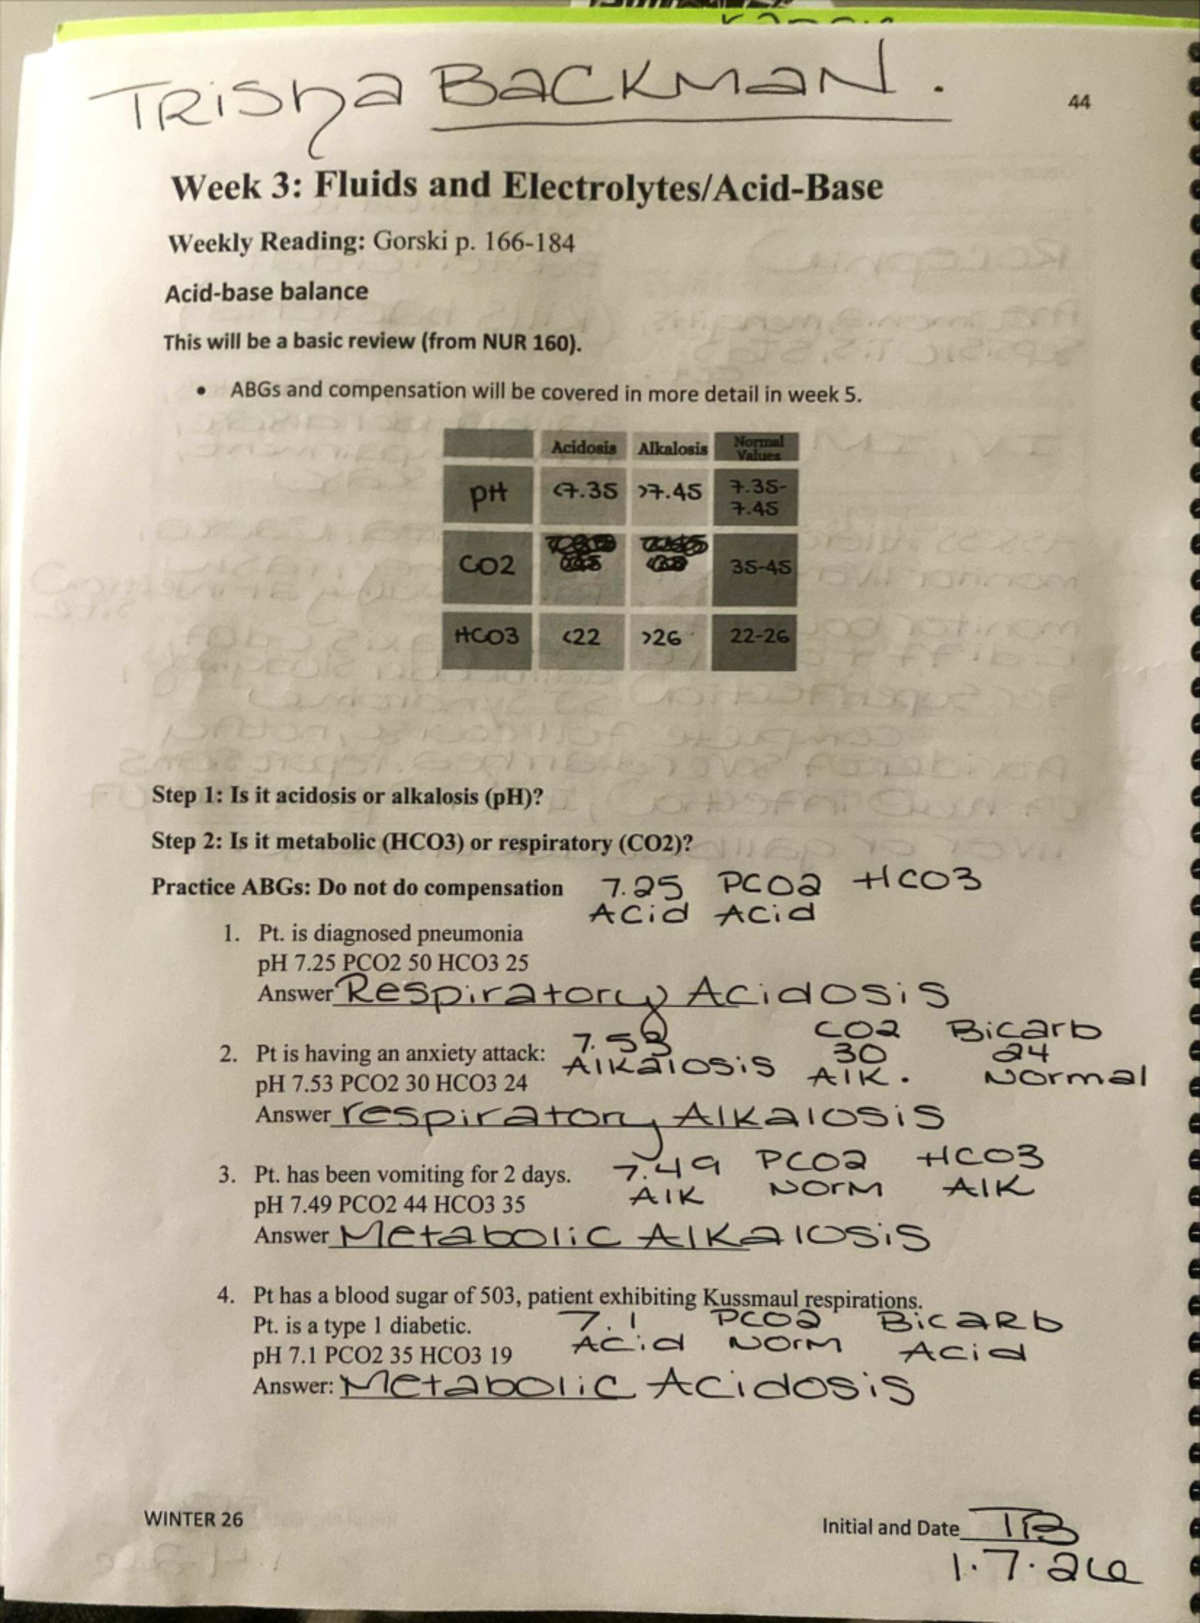 TRISHA BACKMAN.
44
Week 3: Fluids and Electrolytes/Acid-Base
Weekly Reading: Gorski p. 166-184
Acid-base balance
This will be a basic review (from NUR 160).
• ABGs and compensation will be covered in more detail in week 5.
Acidosis Alkalosis Normal Values
pH <7.35 >7.45 7.35-7.45
CO2 35-45
HCO3 <22 >26 22-26
Step 1: Is it acidosis or alkalosis (pH)?
Step 2: Is it metabolic (HCO3) or respiratory (CO2)?
Practice ABGs: Do not do compensation 7.25 PCO2 HCO3
Acid Acid
1. Pt. is diagnosed pneumonia
pH 7.25 PCO2 50 HCO3 25
Answer Respiratory Acidosis
7.53 CO2 Bicarb
2. Pt is having an anxiety attack: Alkalosis 30 24
pH 7.53 PCO2 30 HCO3 24 Alk. Normal
Answer respiratory Alkalosis
7.49 PCO2 HCO3
3. Pt. has been vomiting for 2 days. Alk Norm Alk
pH 7.49 PCO2 44 HCO3 35
Answer Metabolic Alkalosis
4. Pt has a blood sugar of 503, patient exhibiting Kussmaul respirations.
Pt. is a type 1 diabetic. 7.1 PCO2 Bicarb
Acid Norm Acid
pH 7.1 PCO2 35 HCO3 19
Answer: Metabolic Acidosis
WINTER 26
Initial and Date TB
1.7.26